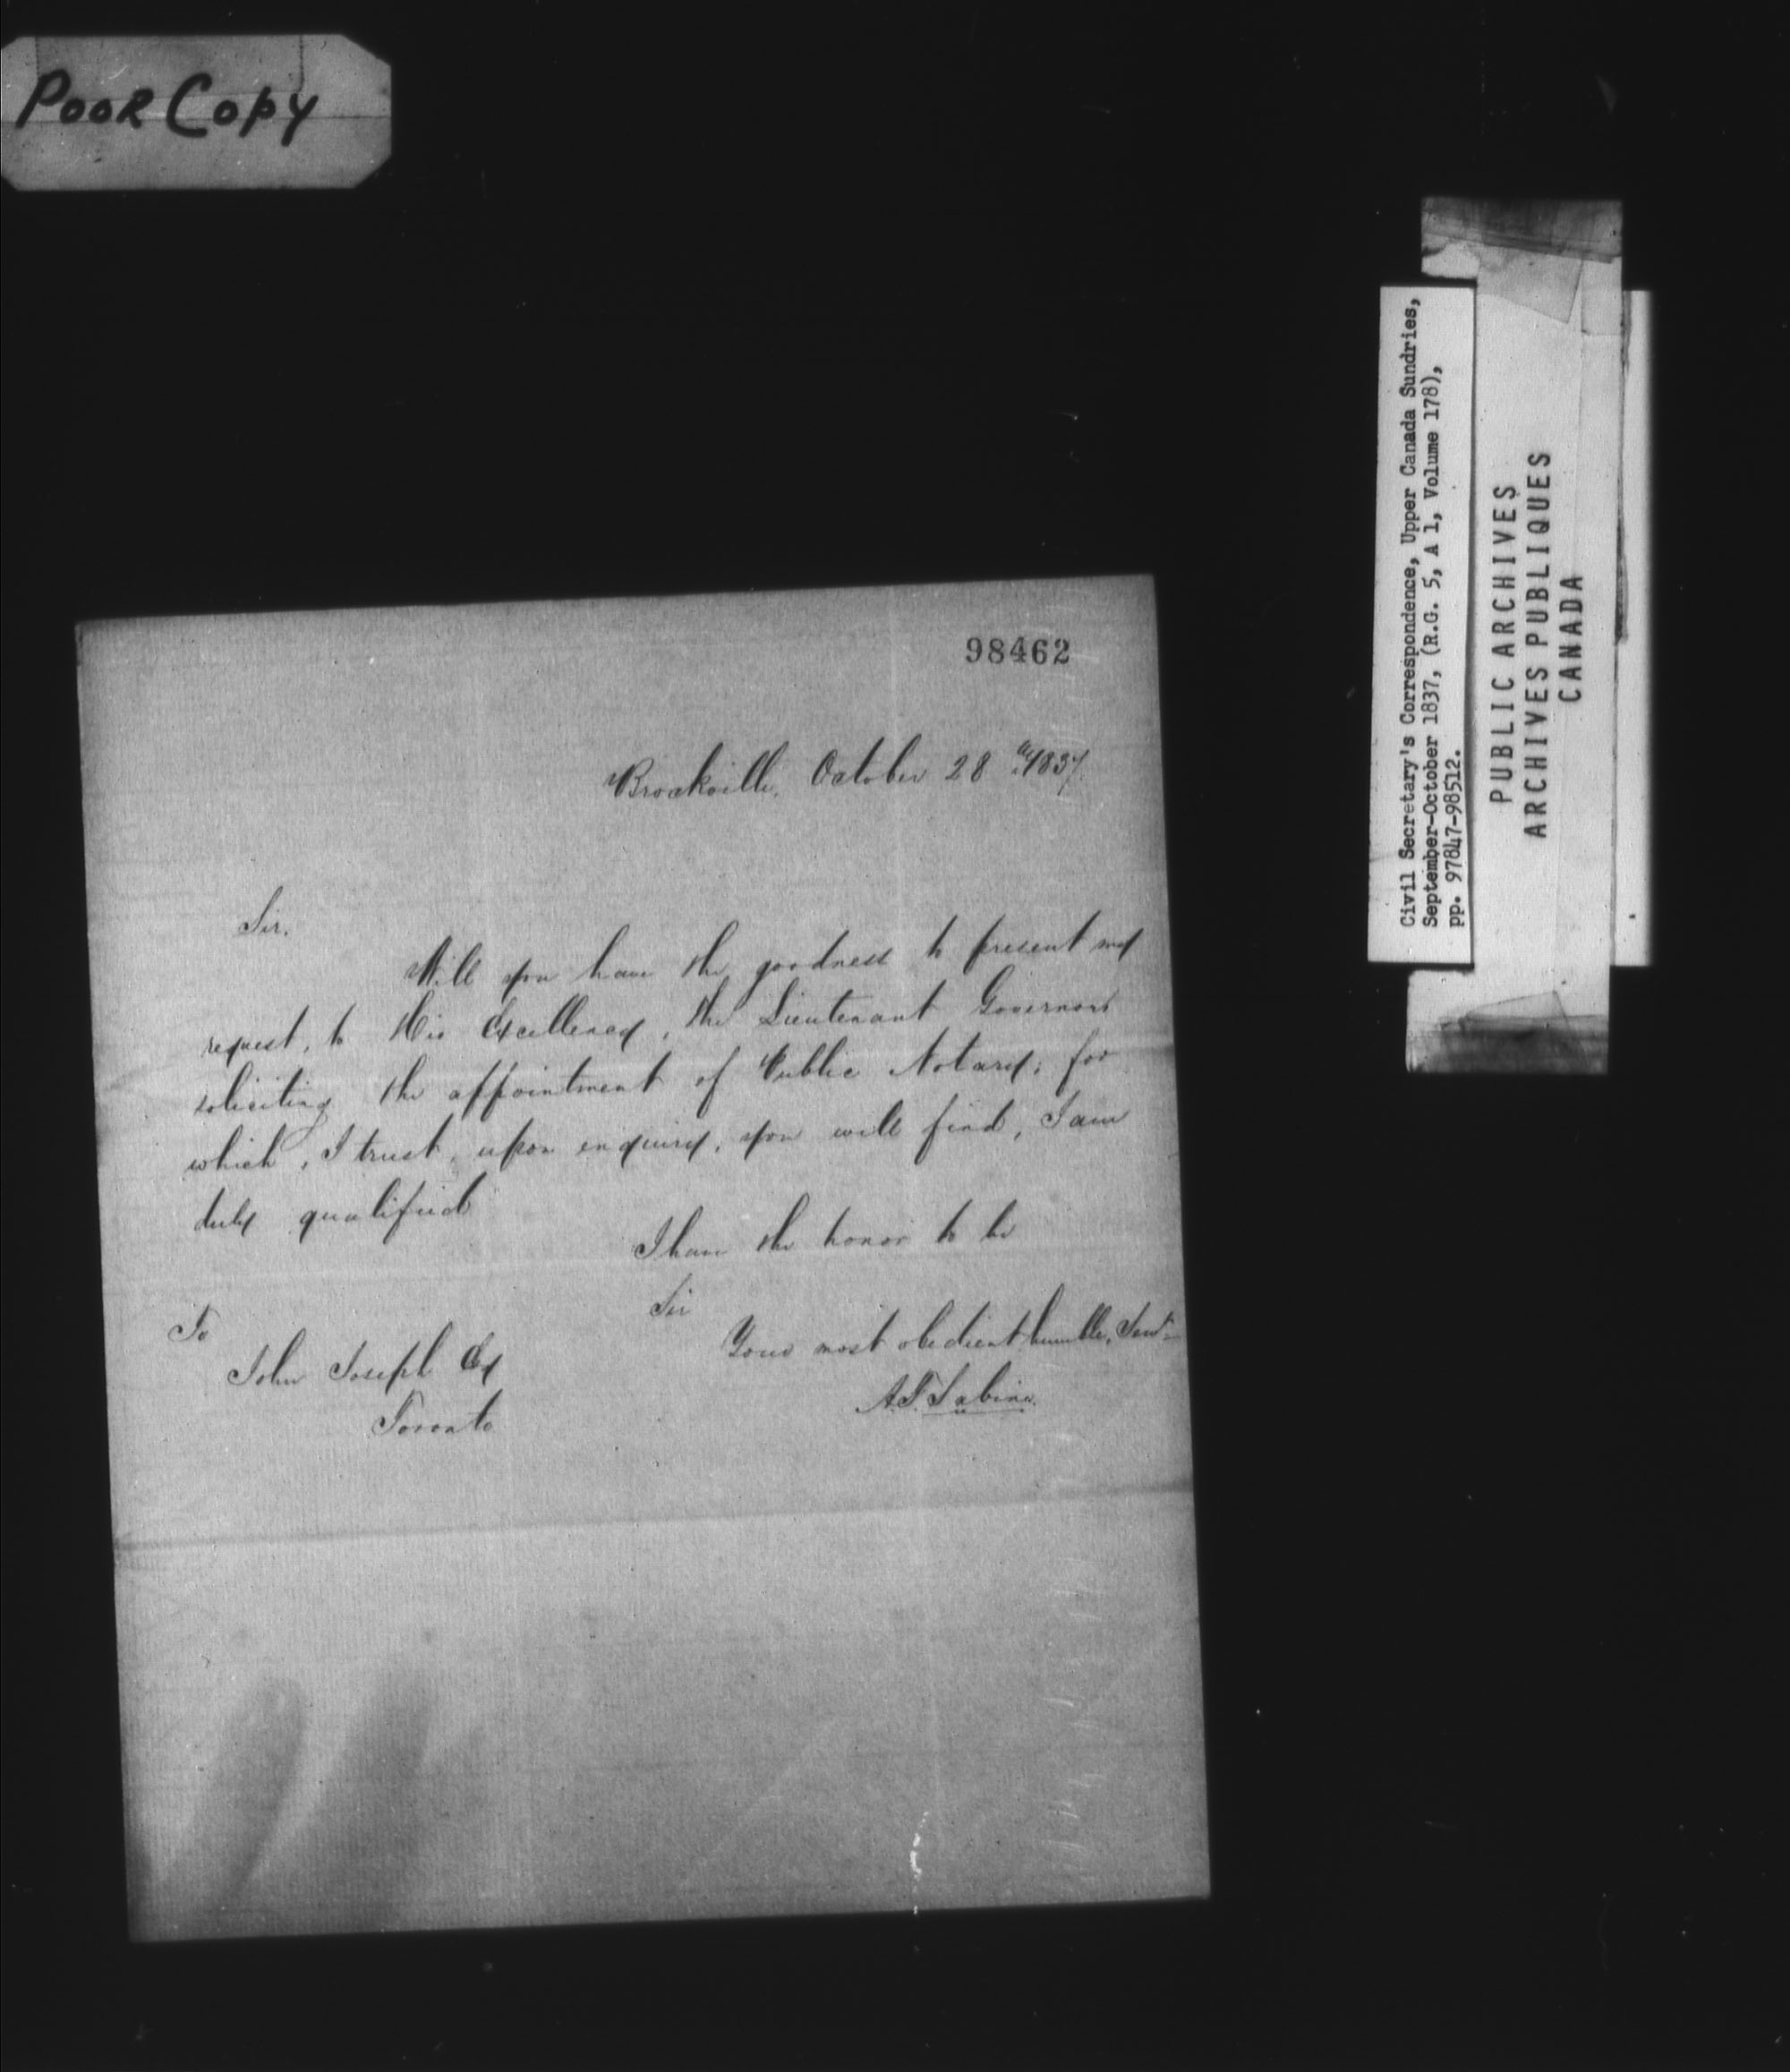 Poor Copy
98462
Brockville, October 28th 1837.
Sir.
Will you have the goodness to present my
request, to His Excellency, the Lieutenant Governor
soliciting the appointment of Public Notary; for
which, I trust, upon enquiry, you will find, I am
duly qualified
I have the honor to be
Sir
Your most obedient humble, Servt
A.S. Sabine.
To
John Joseph Esq
Toronto
Civil Secretary's Correspondence, Upper Canada Sundries,
September-October 1837, (R.G. 5, A 1, Volume 178),
pp. 97847-98512.
PUBLIC ARCHIVES
ARCHIVES PUBLIQUES
CANADA